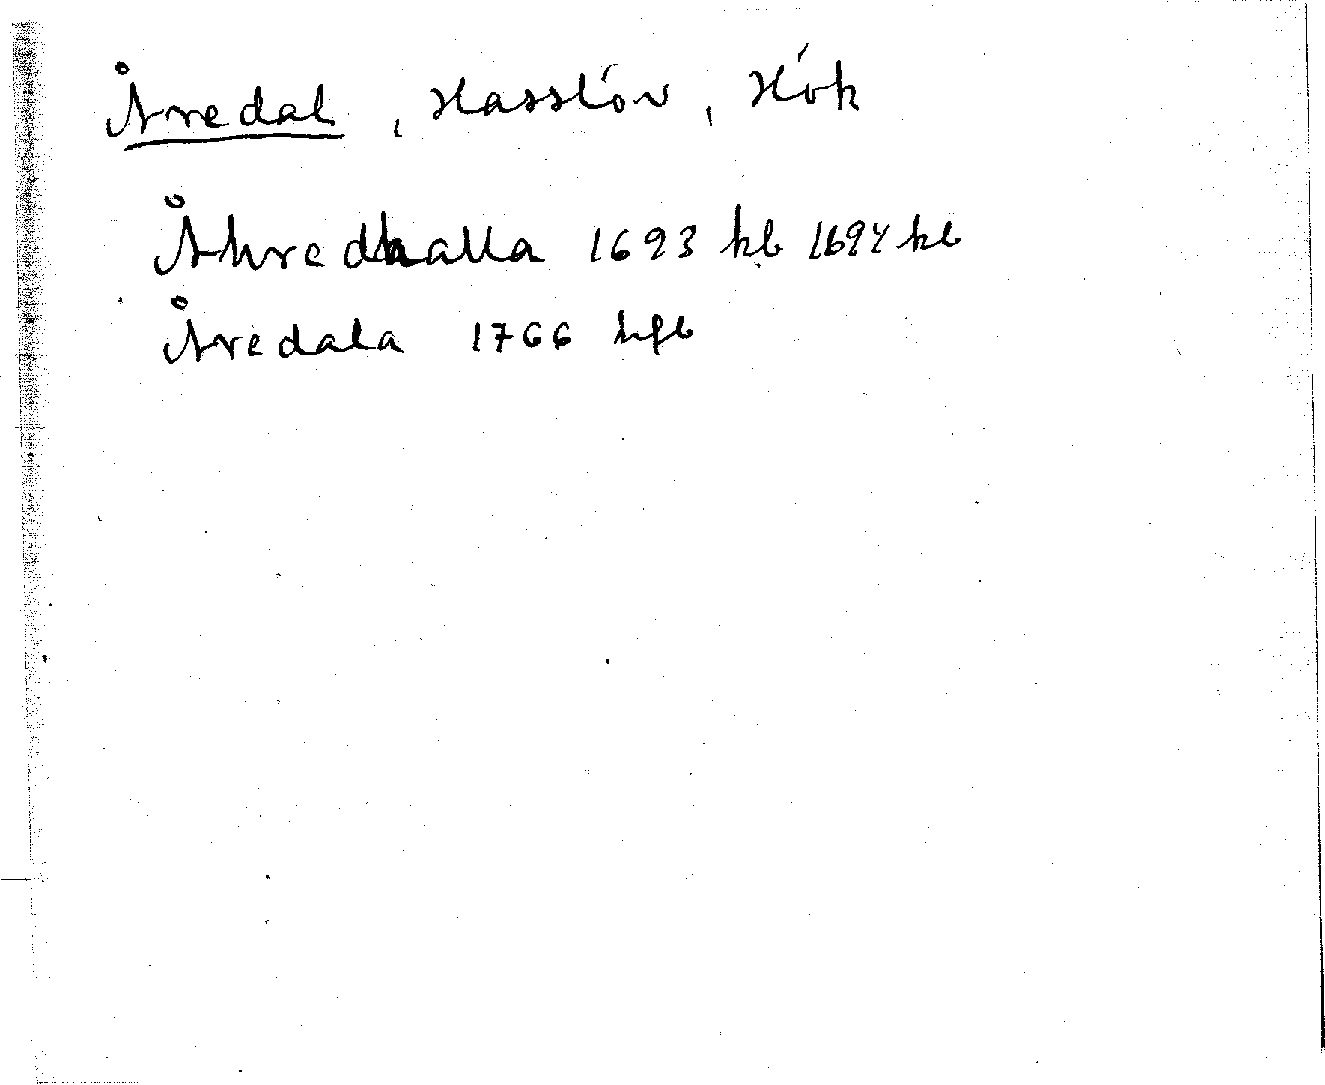 Åredal, Hasslöv, Hök
Åhredhalla 1693 kb 1694 kb
Åredala 1766 hfl